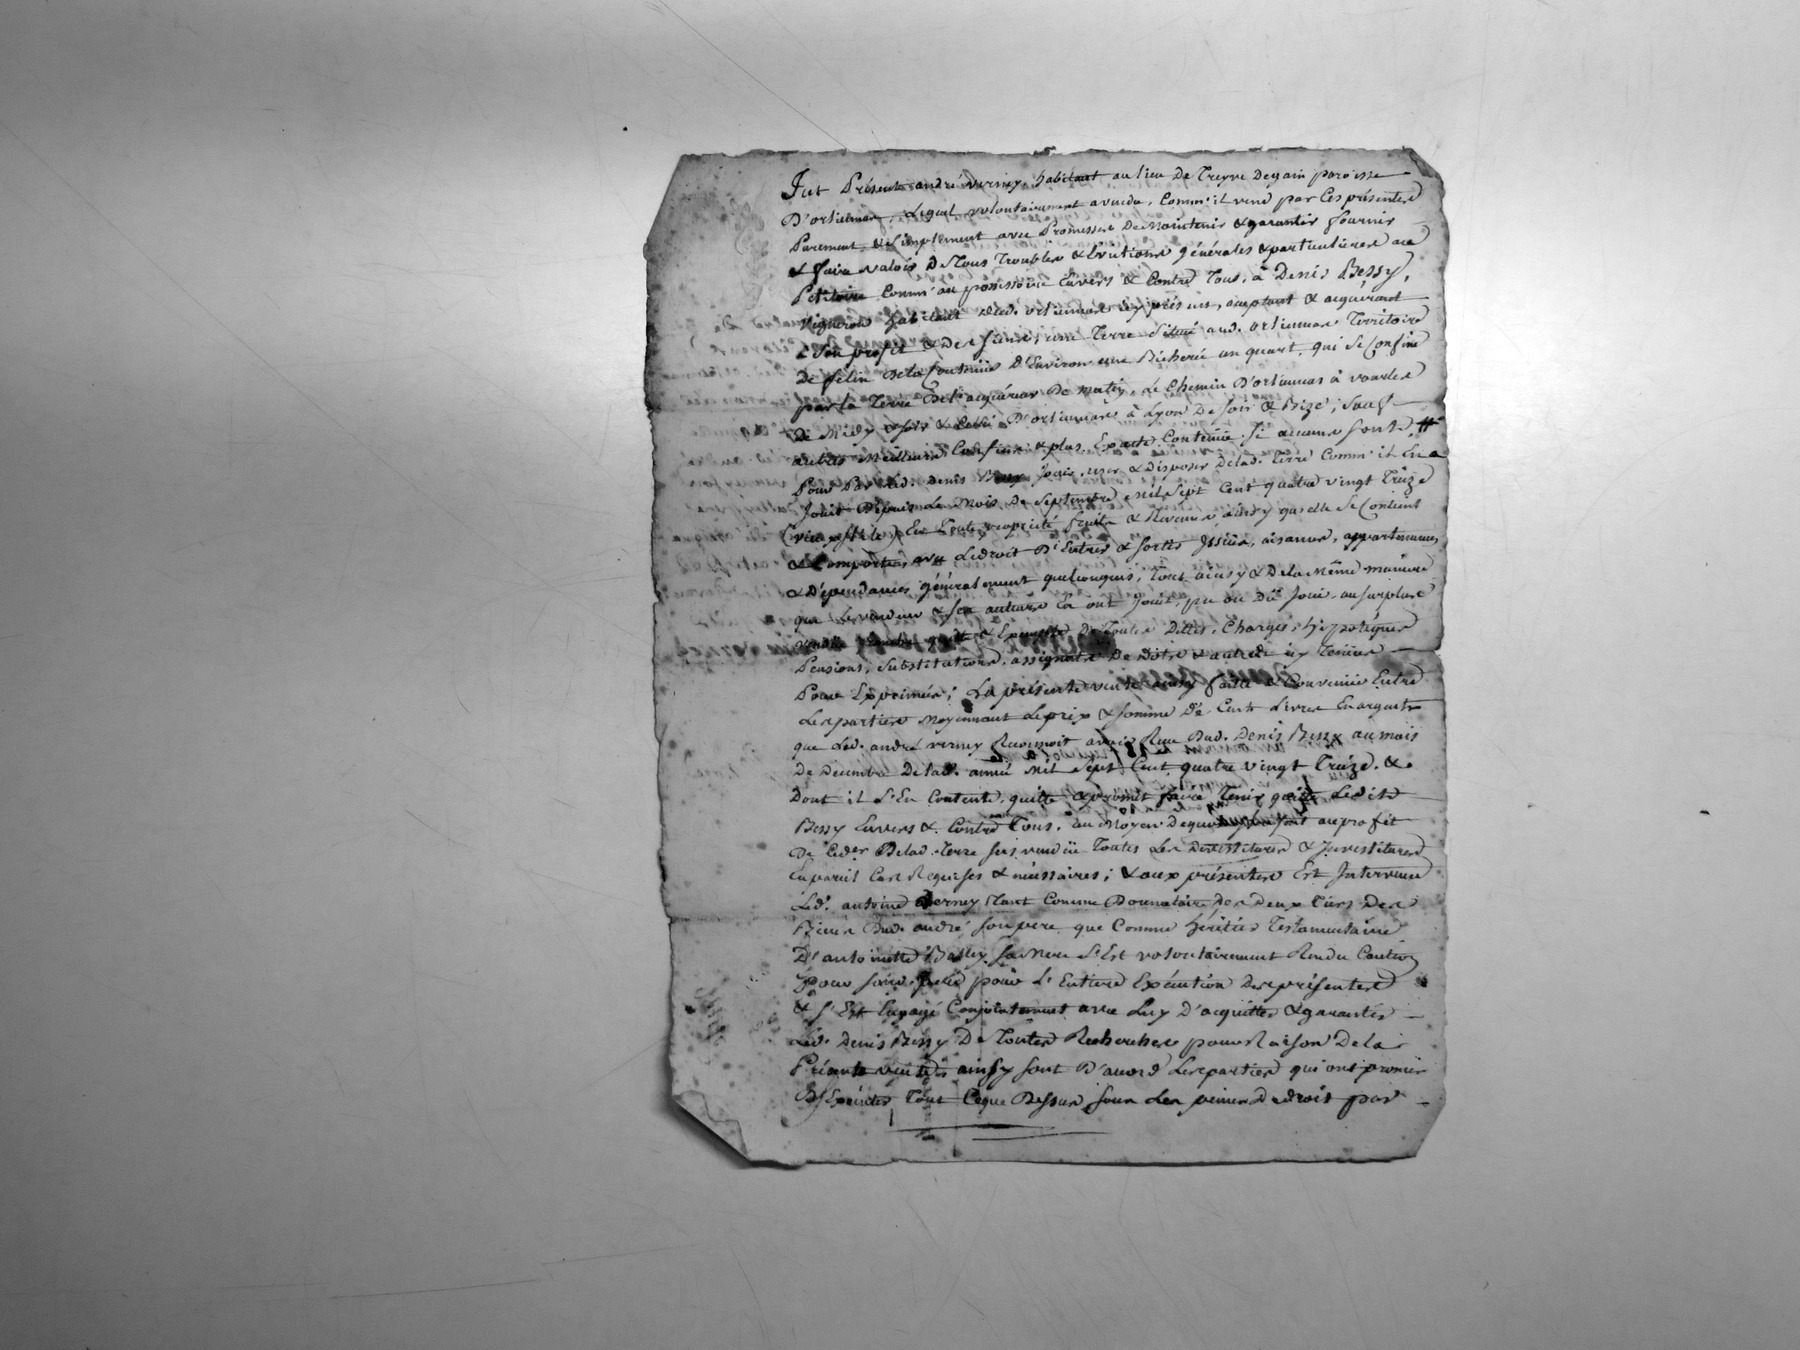 Fut Présent andré verney habitant au lieu De Treyve Degain paroisse
D'ortiemas, Lequel volontairement avendu, Comm'il vend par Ces présentes
Purement & Simplement avec Promesse De Maintenir & garantir fournir
& faire valoir De Tous Troubles & Evictions générales & particulieres au
Petitoire Comm'au possessoire Envers & Contre Tous, à Denis Bessy,
Vigneron habitant aud. ortiemas icy présent, aceptant & acquérant
à Son profit & Des Siens; une Terre Située aud. ortiemas Territoire
De felin De la Contenüe D'Environ une Bicherée un quart, qui Se Confine
par la Terre De l'acquéreur De matin, Le Chemin D'ortiemas à vourles
De Midy & soir & Celui D'ortiemas à Lyon De soir & Bize; Sauf
autres Meilleurs Confins & plus Exacte Contenüe Si aucuns sont, #
Pour Par Led. Denis Bessy Jouir, user & Disposer Delad. Terre Comm'il En a
Jouit Depuis Le Mois De Septembre mil Sept Cent quatre vingt Treize
(vieux stile) En Toute propriété fruits & Revenus, ainsy qu'elle Se Contient
& Comporte, avec Ledroit D'Entrés & sorties Issües, aisances, appartenances
& Dépendances généralement quelconques, Tout ainsy & De la Même maniere
que Le vendeur & ses auteurs En ont Jouit, pu ou Dü Jouir, au surplus
quitte & Exempte De Toutes Dettes, Charges, hipotéques
Pensions, Substitutions, assignats De Dotre & autres icy Tenües
Pour Exprimés; La présente vente ainsy faitte & Convenüe Entre
Les parties Moyennant Le prix & somme De Cent Livres En argent
que Led. andré verney Reconnoit avoir Reçu Dud. Denis Bessy au mois
De Decembre De lad. année Mil Sept Cent quatre vingt Treize. &
Dont il S'En Contente, quitte & promet faire Tenir quitte Ledit
Bessy Envers & Contre Tous, au Moyen Dequoy au profit
De Cedernier Delad. Terre Sus vendüe Toutes Les Devestitures & Investitures
En pareil Cas Requises & nécessaires; & aux présentes Est Intervenu
Led. antoine Verney Tant Comme Donnataire Des Deux Tiers Des
Biens Dud. andré Son pere que Comme héritier Testamentaire
D'antoinette Sa Mere S'Est volontairement Rendu Caution
pour Son pour L'Entiere Exécution Des présentes
& S'Est Engagé Conjointement avec Luy D'acquitter & garantir
Led. Denis Bessy De Toutes Recherches pour Raison De la
Présente vente, ainsy sont D'acord Les parties qui ont promis
D'Exécuter Tout Ceque Dessus sous Les peines De droit par